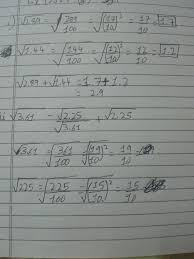 i) √2.89 = √289/100 = √(17)²/10 = 17/10 = 1.7
√1.44 = √144/100 = √(12)²/10 = 12/10 = 1.2
√2.89 + √1.44 = 1.7 + 1.2
= 2.9
ii √3.61 - √2.25 + √2.25
√3.61
√3.61 = √361/100 = √(19)²/10 = 19/10
√225 = √225/100 = √(15)²/10 = 15/10